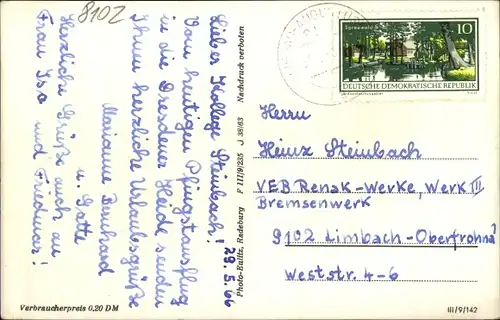 8102
Lieber Kollege Steinbach!
29.5.66
Vom heutigen Pfingstausflug
in die Dresdener Heide senden
Ihnen herzliche Urlaubsgrüße
Marianne Bernhard
u. Gatte
Herzliche Grüße auch an
Frau Isa und Friedmar!
Verbraucherpreis 0,20 DM
Photo-Eulitz, Radeburg P III/9/235 J 38/63 Nachdruck verboten
Spreewald
10
DEUTSCHE DEMOKRATISCHE REPUBLIK
Herrn
Heinz Steinbach
VEB Renak-Werke, Werk III
Bremsenwerk
9102 Limbach-Oberfrohna
Weststr. 4-6
III/9/142